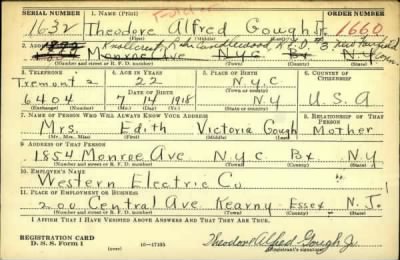 SERIAL NUMBER 1. NAME (Print) ORDER NUMBER
1632 Theodore Alfred Gough Jr. 1660
(First) (Middle) (Last)
2. ADDRESS (Print)
R.F.D. 3 New Fairfield Conn
Monroe Ave N.Y.C Bx. N.Y
(Number and street or R. F. D. number) (Town) (County) (State)
3. TELEPHONE 4. AGE IN YEARS 5. PLACE OF BIRTH 6. COUNTRY OF CITIZENSHIP
Tremont 2 22 N.Y.C
DATE OF BIRTH (Town or county)
6404 7 14 1918 N.Y U.S.A
(Exchange) (Number) (Mo.) (Day) (Yr.) (State or country)
7. NAME OF PERSON WHO WILL ALWAYS KNOW YOUR ADDRESS 8. RELATIONSHIP OF THAT PERSON
Mrs. Edith Victoria Gough Mother
(Mr., Mrs., Miss) (First) (Middle) (Last)
9. ADDRESS OF THAT PERSON
1854 Monroe Ave N.Y.C Bx N.Y
(Number and street or R. F. D. number) (Town) (County) (State)
10. EMPLOYER'S NAME
Western Electric Co
11. PLACE OF EMPLOYMENT OR BUSINESS
200 Central Ave Kearny Essex N.J.
(Number and street or R. F. D. number) (Town) (County) (State)
I AFFIRM THAT I HAVE VERIFIED ABOVE ANSWERS AND THAT THEY ARE TRUE.
REGISTRATION CARD
D. S. S. Form 1 (over) 16-17105 Theodore Alfred Gough Jr.
(Registrant's signature)